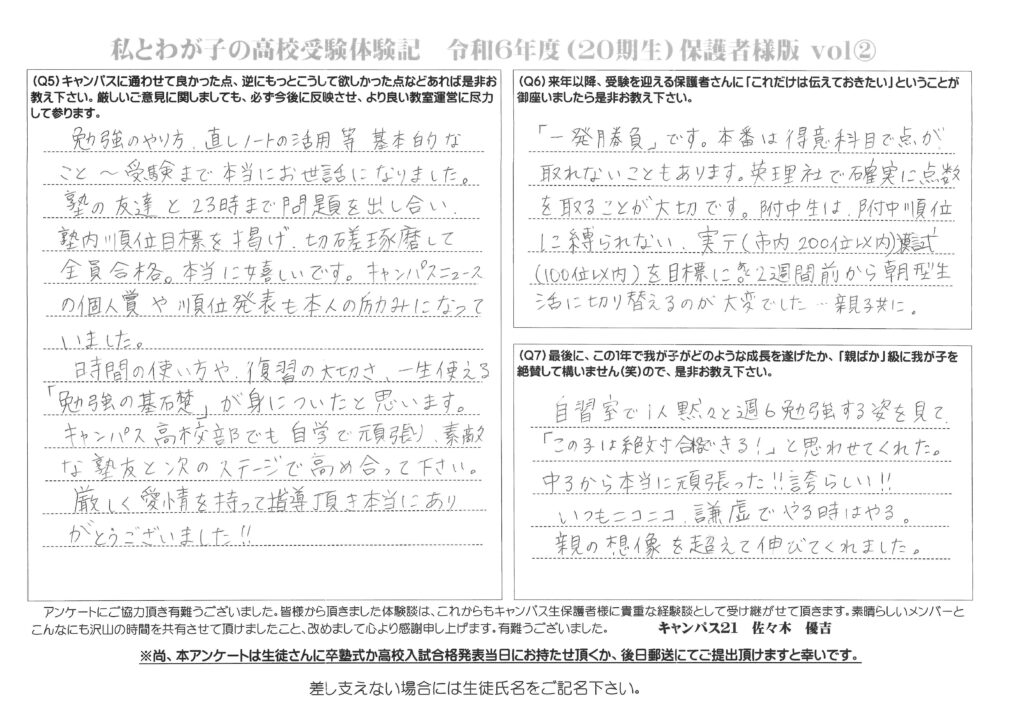 私とわが子の高校受験体験記　令和6年度(20期生)保護者様版 vol②
(Q5)キャンパスに通わせて良かった点、逆にもっとこうして欲しかった点などあれば是非お
教え下さい。厳しいご意見に関しましても、必ず今後に反映させ、より良い教室運営に尽力
して参ります。
勉強のやり方、直しノートの活用 等 基本的な
こと～受験まで本当にお世話になりました。
塾の友達と23時まで問題を出し合い、
塾内順位目標を掲げ、切磋琢磨して
全員合格。本当に嬉しいです。キャンパスニュース
の個人賞や順位発表も本人の励みになって
いました。
時間の使い方や、復習の大切さ、一生使える
「勉強の基礎」が身についたと思います。
キャンパス高校部でも自学で頑張り、素敵
な塾友と次のステージで高め合って下さい。
厳しく愛情を持って指導頂き本当にあり
がとうございました!!
(Q6)来年以降、受験を迎える保護者さんに「これだけは伝えておきたい」ということが
御座いましたら是非お教え下さい。
「一発勝負」です。本番は得意科目で点が
取れないこともあります。英理社で確実に点数
を取ることが大切です。附中生は、附中順位
に縛られない、実テ(市内200位以内)模試
(100位以内)を目標に。2週間前から朝型生
活に切り替えるのが大変でした…親子共に。
(Q7)最後に、この1年で我が子がどのような成長を遂げたか、「親ばか」級に我が子を
絶賛して構いません(笑)ので、是非お教え下さい。
自習室で1人黙々と週6勉強する姿を見て、
「この子は絶対合格できる!」と思わせてくれた。
中3から本当に頑張った!!誇らしい!!
いつもニコニコ、謙虚でやる時はやる。
親の想像を超えて伸びてくれました。
アンケートにご協力頂き有難うございました。皆様から頂きました体験談は、これからもキャンパス生保護者様に貴重な経験談として受け継がせて頂きます。素晴らしいメンバーと
こんなにも沢山の時間を共有させて頂けましたこと、改めまして心より感謝申し上げます。有難うございました。　キャンパス21　佐々木　優吉
※尚、本アンケートは生徒さんに卒塾式か高校入試合格発表当日にお持たせ頂くか、後日郵送にてご提出頂けますと幸いです。
差し支えない場合には生徒氏名をご記名下さい。